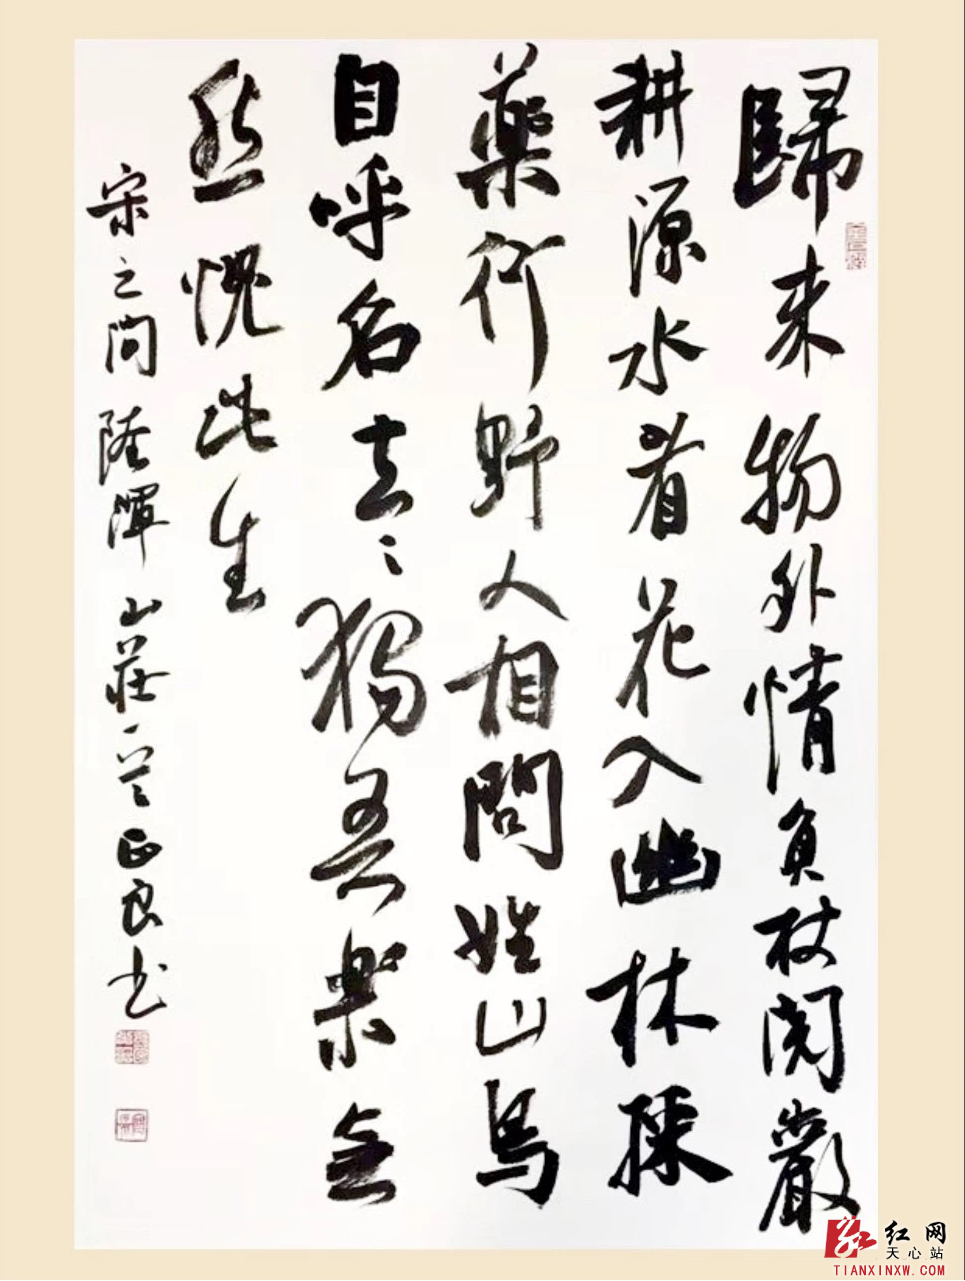 歸来物外情負杖閱嚴
耕源水看花入幽林採
藥行野人相問姓山鳥
自呼名去〻獨吾樂無
然愧此生
宋之問 陸渾山莊一首 正良书
红网
天心站
TIANXINXW.COM